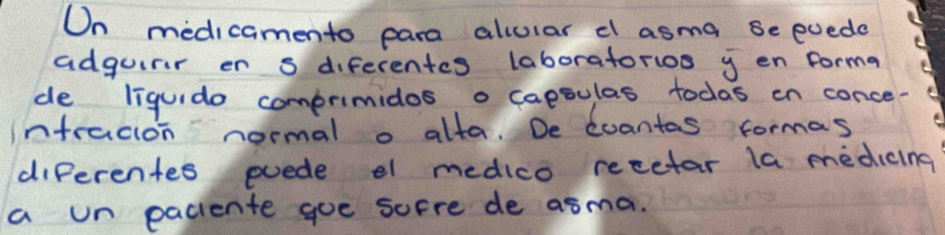 Un médicamento para aliviar el asma se puede
adquirir en 5 diferentes laboratorios y en forma
de líquido comprimidos o capsulas todas en conce-
intración normal o alta. De cuantas formas
diferentes puede el medico recetar la médicina
a un paciente que sufre de asma.